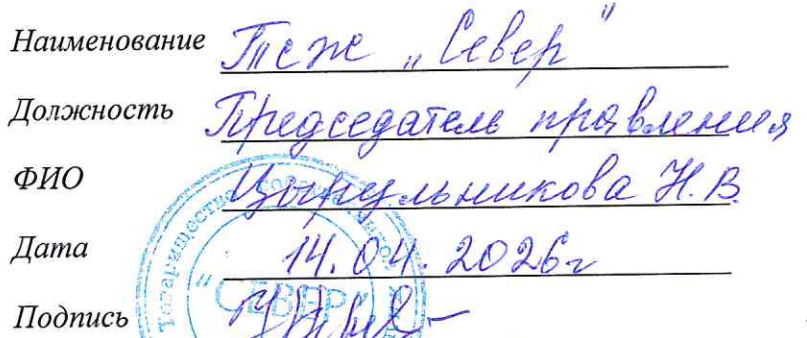 Наименование ТСЖ „Север"
Должность Председатель правления
ФИО Цырульникова Н.В.
Дата 14.04.2026г
Подпись
Товарищество собственников
"СЕВЕР"